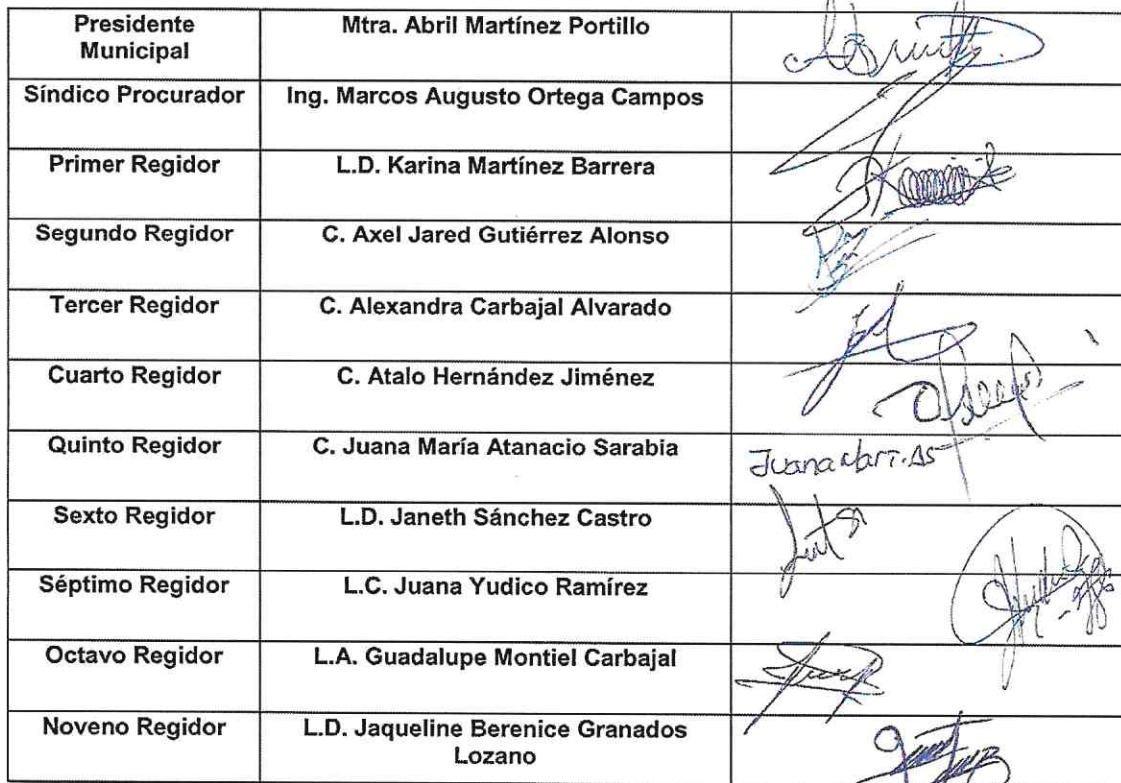 Presidente
Municipal
Mtra. Abril Martínez Portillo
Síndico Procurador
Ing. Marcos Augusto Ortega Campos
Primer Regidor
L.D. Karina Martínez Barrera
Segundo Regidor
C. Axel Jared Gutiérrez Alonso
Tercer Regidor
C. Alexandra Carbajal Alvarado
Cuarto Regidor
C. Atalo Hernández Jiménez
Quinto Regidor
C. Juana María Atanacio Sarabia
Juana
Sexto Regidor
L.D. Janeth Sánchez Castro
Séptimo Regidor
L.C. Juana Yudico Ramírez
Octavo Regidor
L.A. Guadalupe Montiel Carbajal
Noveno Regidor
L.D. Jaqueline Berenice Granados
Lozano